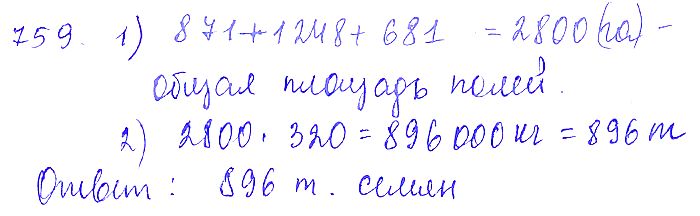 759. 1) 871+1248+681 = 2800 (га) -
общая площадь полей.
2) 2800 · 320 = 896 000 кг = 896 т
Ответ : 896 т. семян